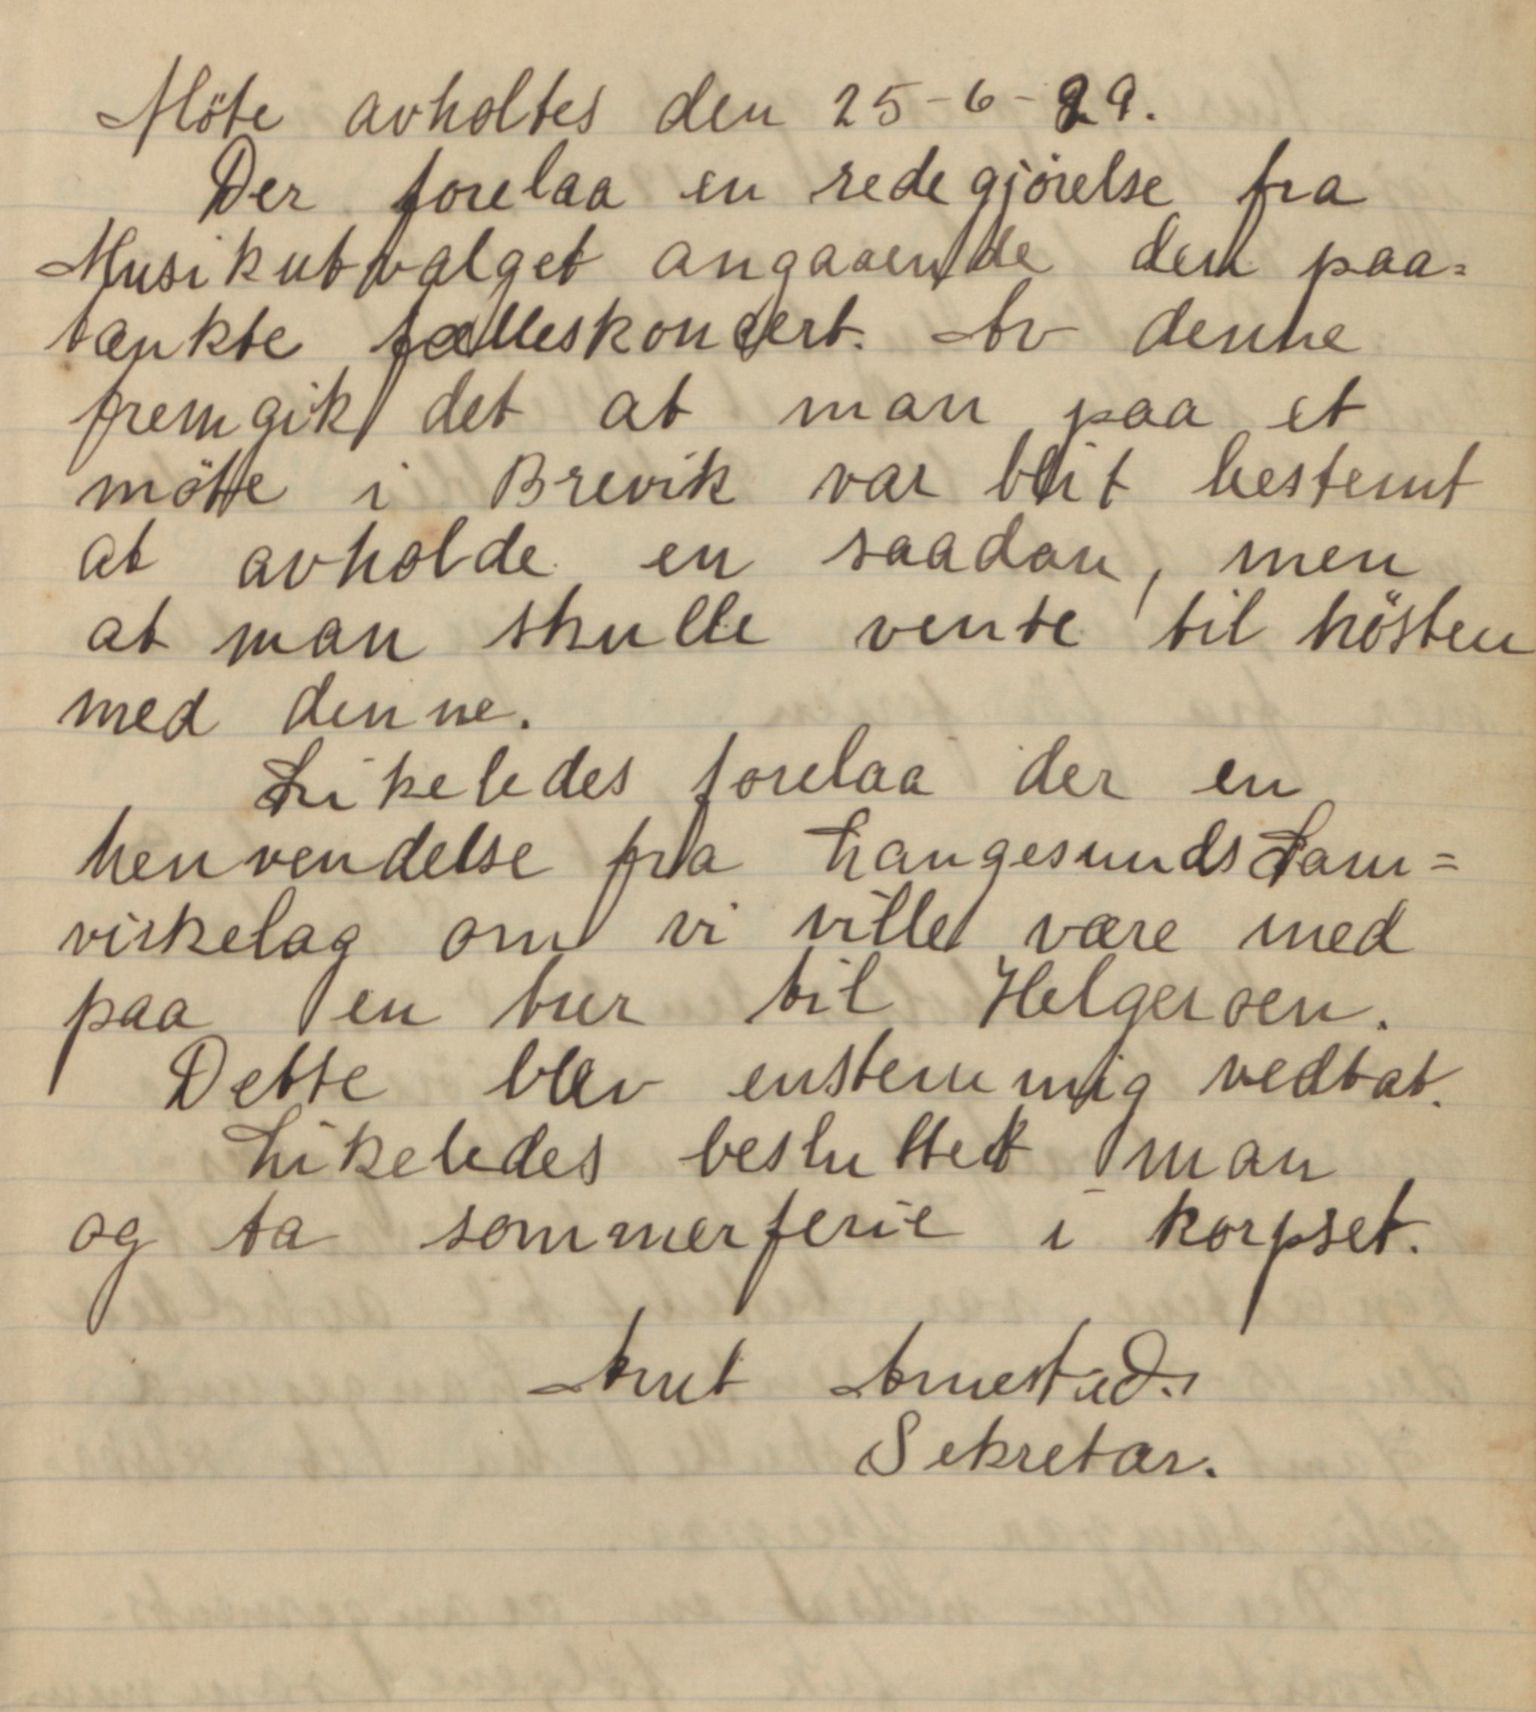 Möte avholtes den 25-6-29.
Der forelaa en redegjörelse fra
Musikutvalget angaaende den paa=
tænkte fælleskoncert. Av denne
fremgik det at man paa et
møtte i Brevik var blit bestemt
at avholde en saadan, men
at man skulle vente til hösten
med denne.
Likeledes forelaa der en
henvendelse fra Langesunds Sam=
virkelag om vi ville være med
paa en tur til Helgeroen.
Dette blev enstemmig vedtat.
Likeledes besluttet man
og ta sommerferie i korpset.
Arnestad.
Sekretær.